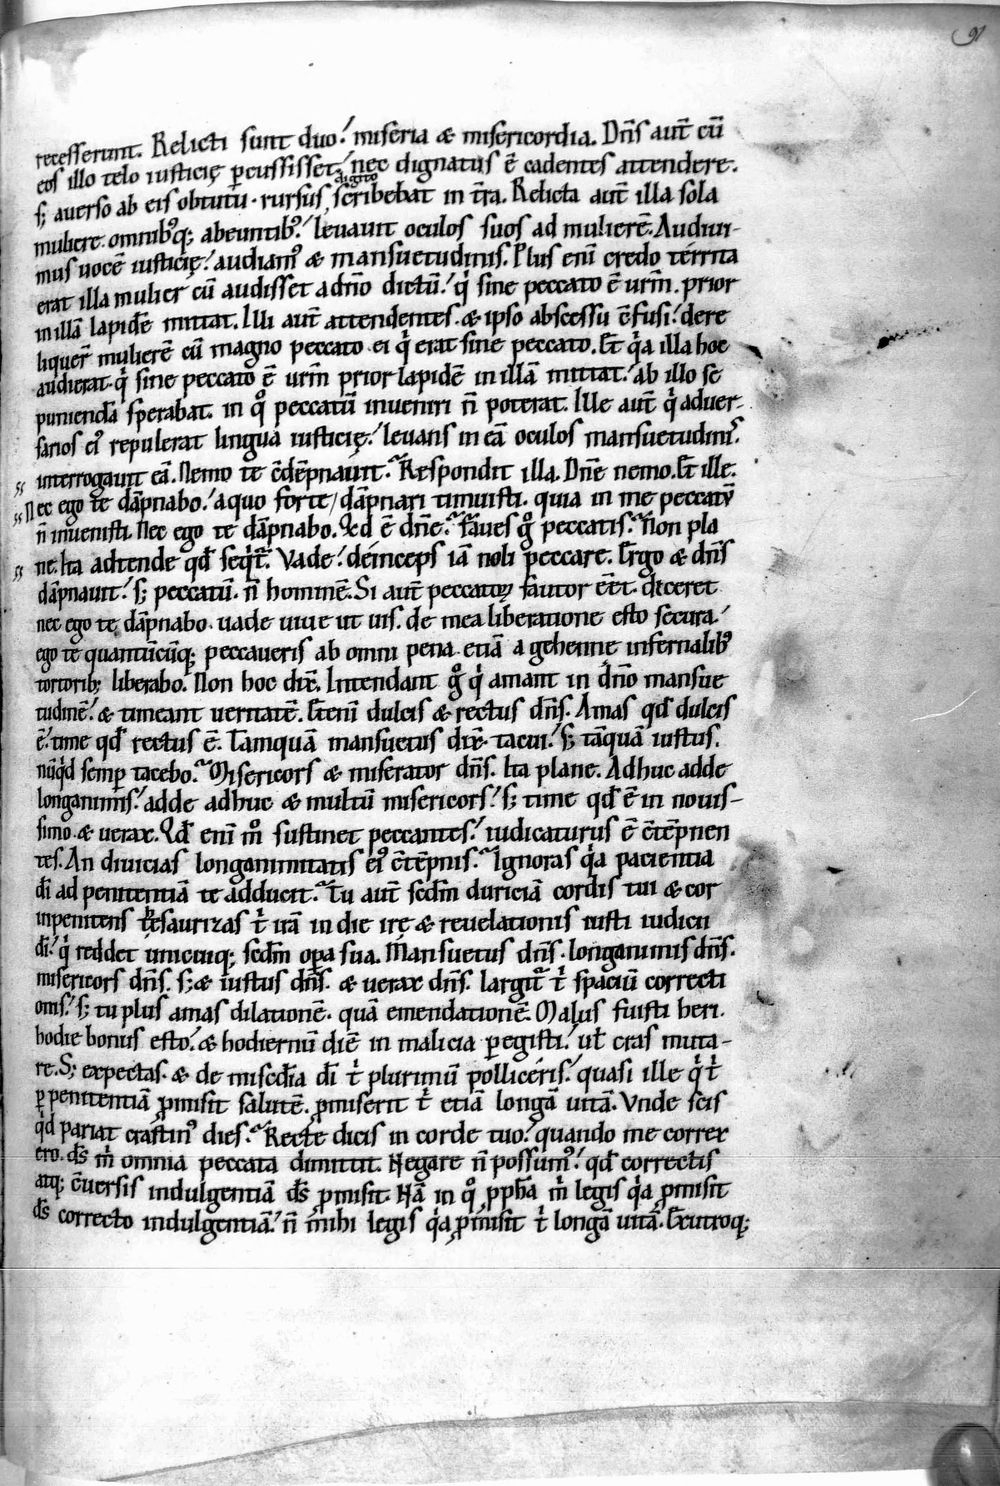 91
recesserunt. Relicti sunt duo! miseria & misericordia. Dñs aut̄ cū
eos illo telo iusticię ꝑcussisset! nec dignatus ē cadentes attendere.
digito
s; auerso ab eis obtutu. rursus, scribebat in t̄ra. Relicta aut̄ illa sola
muliere. omnib;q; abeuntib;! leuauit oculos suos ad mulierē. Audiui-
mus uocē iusticię! audiam᷒ & mansuetudinis. Plus enī credo territa
erat illa mulier cū audisset a dn̄o dictū! q̇ sine peccato ē urm̄. prior
in illā lapidē mittat. Illi aut̄ attendentes. & ipso abscessu c̄fusi! de re
liquer̄ mulierē cū magno peccato ei q̇ erat sine peccato. Et q̇a illa hoc
audierat. q̇ sine peccato ē urm̄ prior lapidē in illā mittat! ab illo se
puniendā sperabat. in q̊ peccatū inueniri n̄ poterat. Ille aut̄ q̇ aduer-
sarios ei᷒ repulerat lingua iusticię! leuans in eā oculos mansuetudinis.
interrogauit eā. Nemo te c̄dēpnauit? Respondit illa. Dn̄e nemo. Et ille.
Nec ego te dāpnabo! a quo forte / dāpnari timuisti. quia in me peccatū
n̄ inuenisti. Nec ego te dāpnabo. Qd ē dn̄e? faues g̊ peccatis? Non pla
ne. Ita adtende qd̄ seqͥt̄. Vade! deinceps iā noli peccare. Ergo & dn̄s
dāpnauit! s; peccatū. n̄ hominē. Si aut̄ peccatoꝝ fautor eēt. diceret
nec ego te dāpnabo. uade uiue ut uis. de mea liberatione esto secura!
ego te quantūcūq; peccaueris ab omni pena etiā a gehenne infernalib᷒
tortorib; liberabo. Non hoc dix̄. Intendant g̊ q̇ amant in dn̄o mansue
tudinē! & timeant ueritatē. Etenī dulcis & rectus dn̄s. Amas qd̄ dulcis
ē! time qd̄ rectus ē. Tamquā mansuetus dix̄. tacui! s; tāquā iustus.
nūqͥd semꝑ tacebo? Misericors & miserator dn̄s. Ita plane. Adhuc adde
longanimis! adde adhuc & multū misericors! s; time qd̄ ē in nouis-
simo. & uerax. Qd̄ enī m̊ sustinet peccantes! iudicaturus ē c̄tēpnen
tes. An diuicias longanimitatis ei᷒ c̄tēpnis? Ignoras q̇a pacientia
dī ad penitentiā te adducit? Tu aut̄ scdm̄ duriciā cordis tui & cor
inpenitens thesaurizas t̄ irā in die irę & reuelationis iusti iudicii
dī! q̇ reddet unicuiq; scdm̄ opa sua. Mansuetus dn̄s. longanimis dn̄s.
misericors dn̄s. s; & iustus dn̄s. & uerax dn̄s. largit̄ t̄ spaciū correcti
onis! s; tu plus amas dilationē. quā emendationē. Malus fuisti heri.
hodie bonus esto! & hodiernū diē in malicia ꝑegisti! ut̄ cras muta-
re. S; expectas. & de misc̄dia dī t̄ plurimū polliceris! quasi ille q̇ t̄
ꝑ penitentiā ꝓmisit salutē. ꝓmiserit t̄ etiā longā uitā. Vnde scis
qd̄ pariat crastin᷒ dies? Recte dicis in corde tuo! quando me correx
ero. dȿ m̄ omnia peccata dimittit. Negare n̄ possum᷒! qd̄ correctis
atq; c̄uersis indulgentiā dȿ ꝓmisit. Nā in q̊ ꝓph̄a m̄ legis q̇a ꝓmisit
dȿ correcto indulgentiā! n̄ m̄ihi legis q̇a ꝓmisit t̄ longā uitā. Ex utroq;